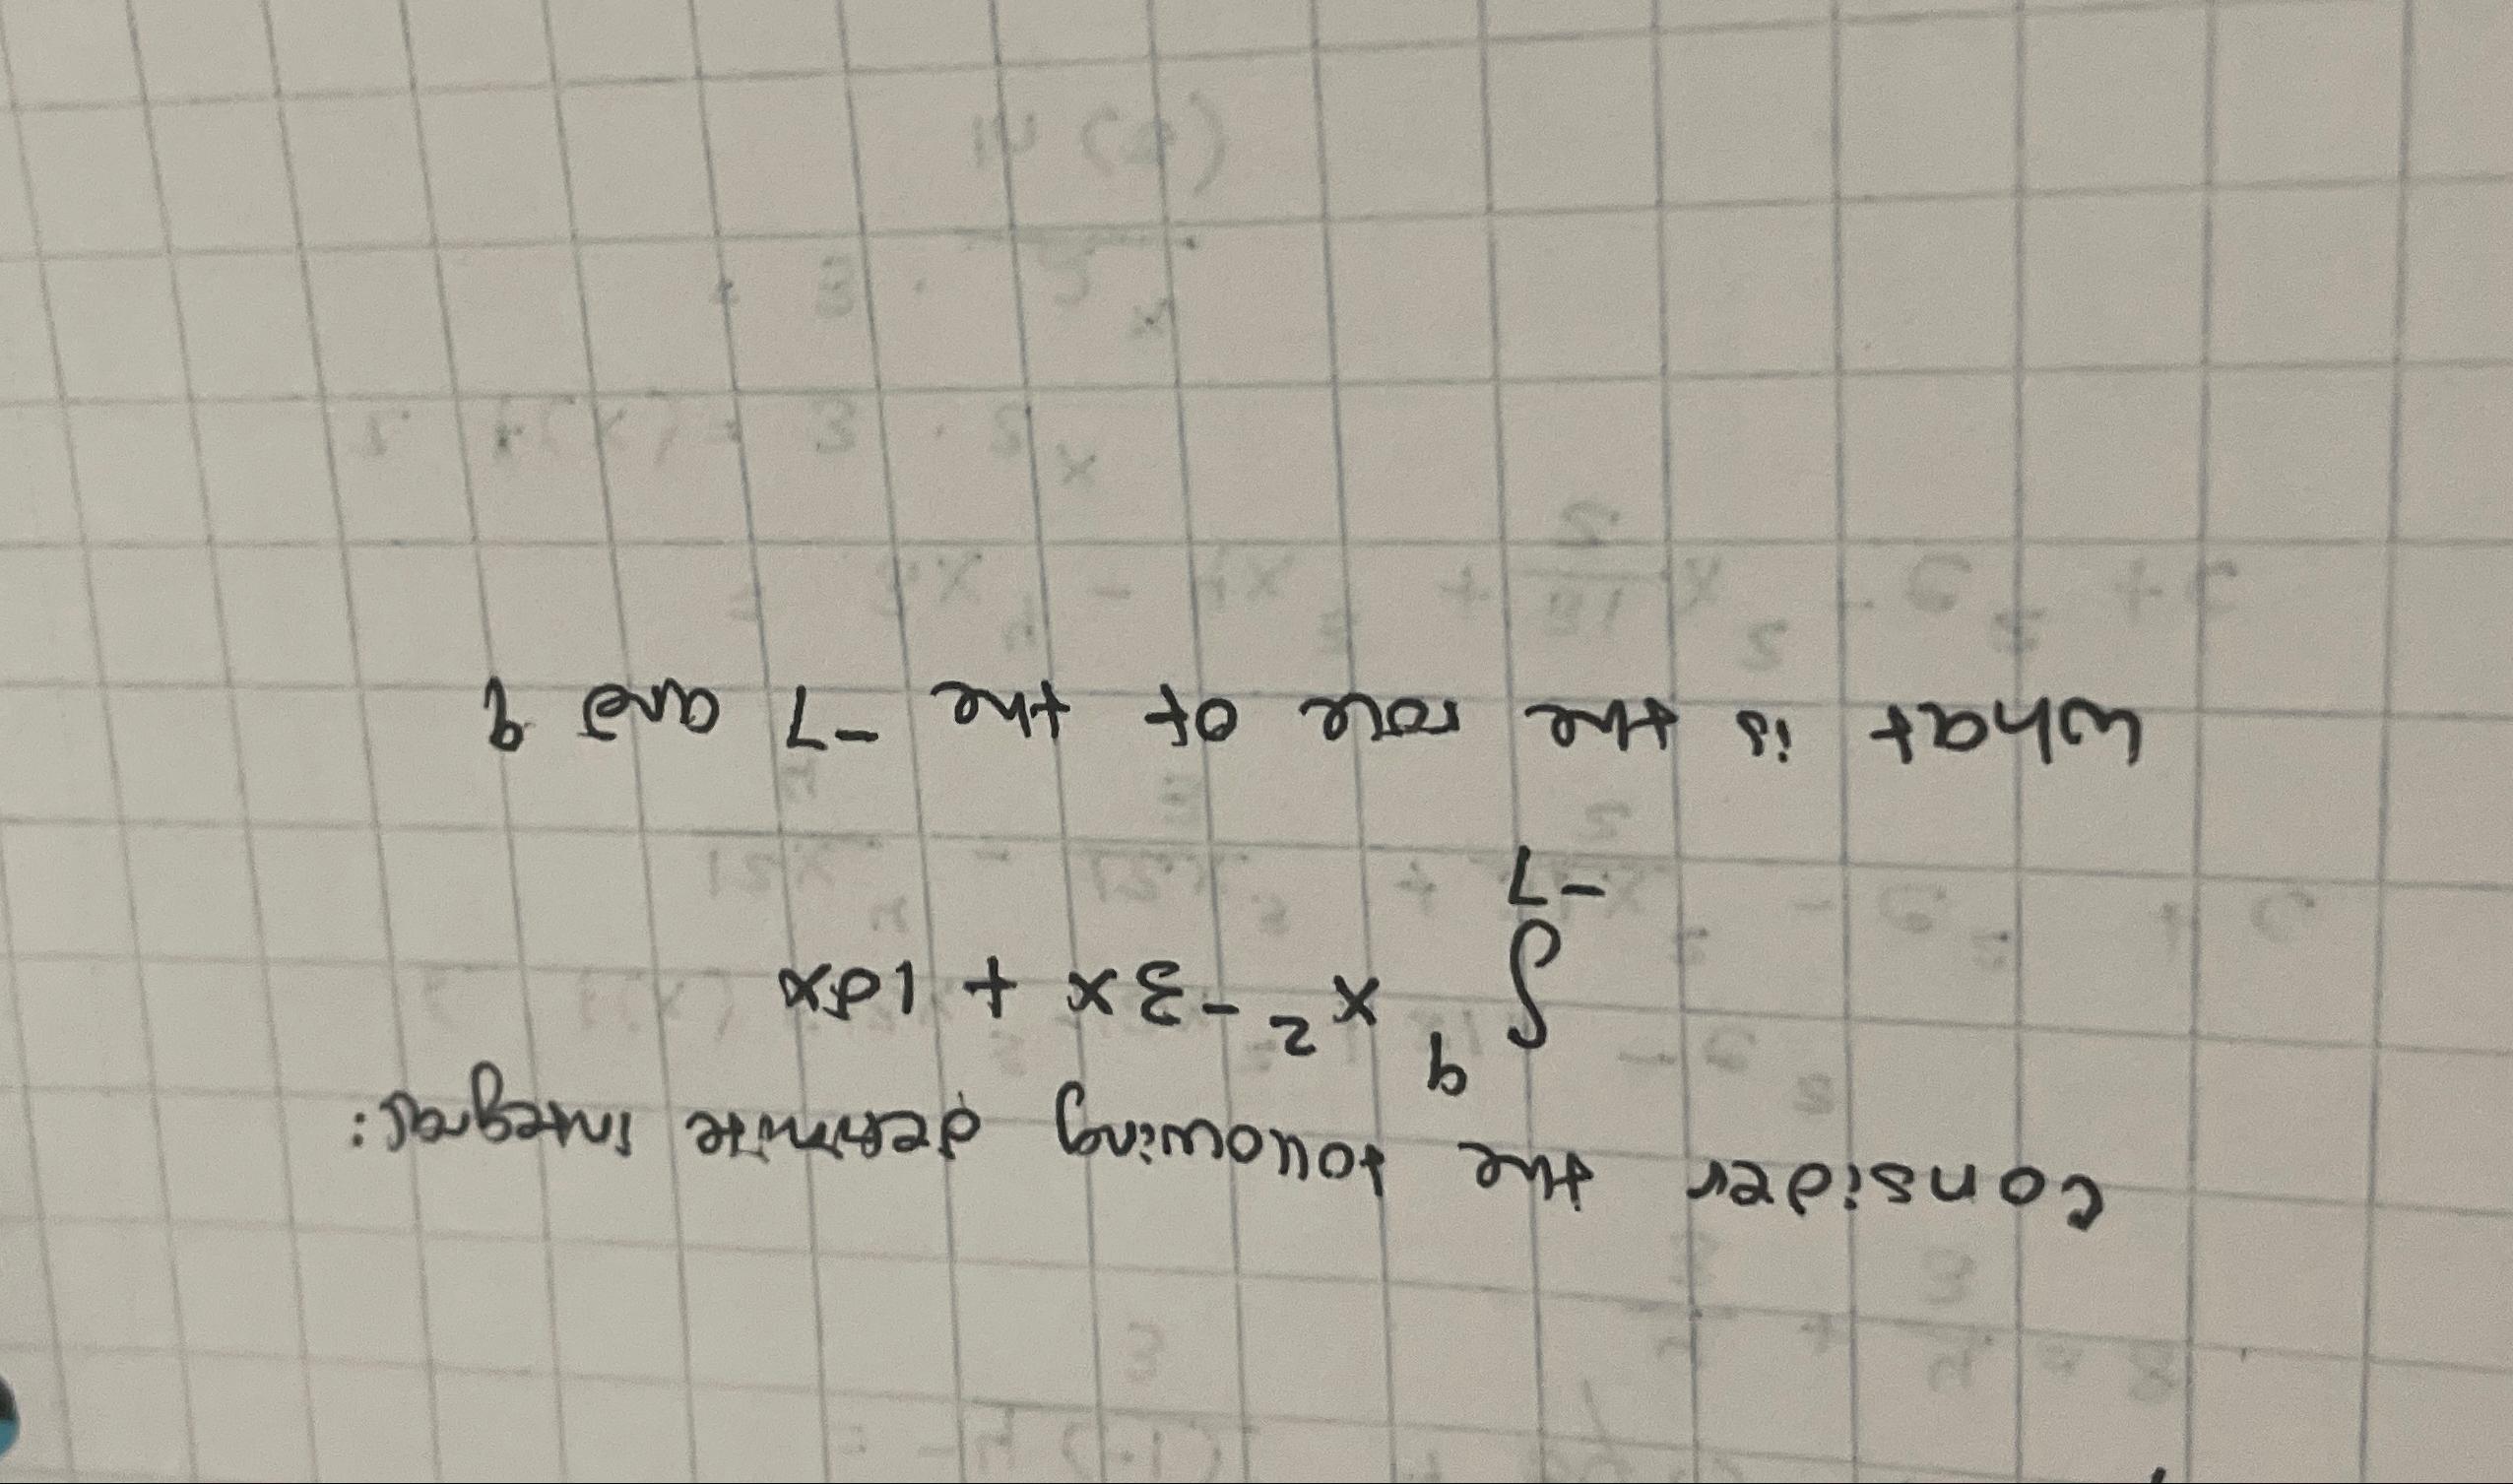 Consider the following definite integral:
9
∫ x² -3x + 1dx
-7
What is the role of the -7 and 9